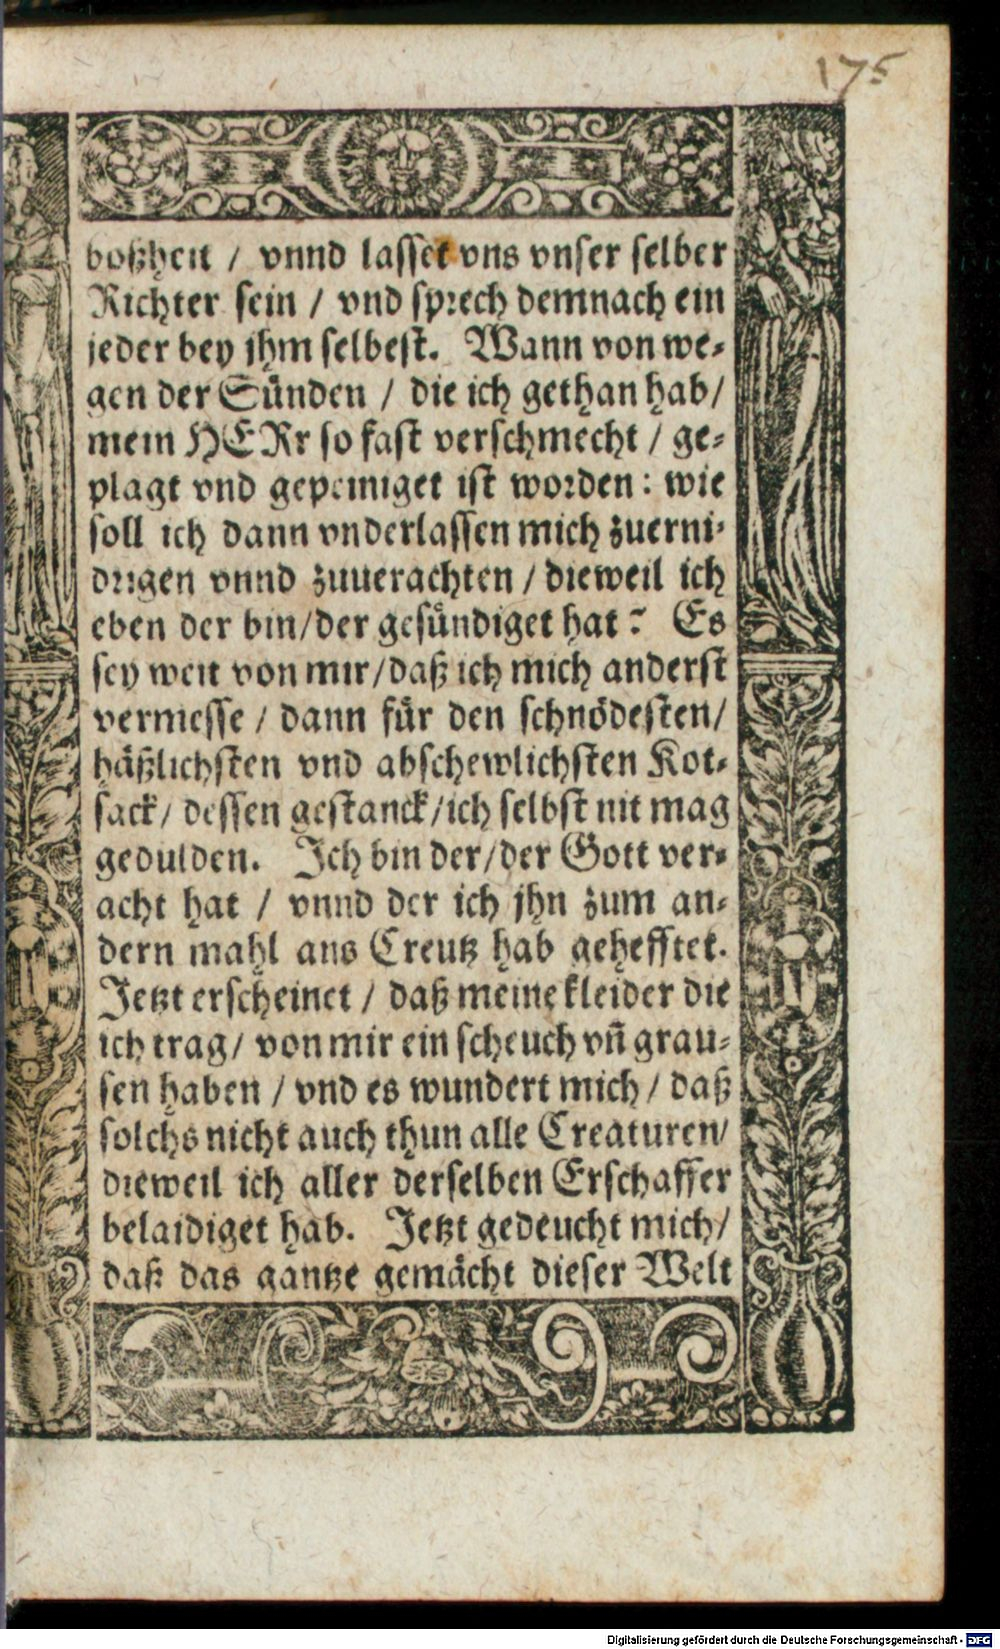 175
boßheit / vnnd lasset vns vnser selber
Richter sein / vnd sprech demnach ein
jeder bey jhm selbest. Wann von we-
gen der Sünden / die ich gethan hab/
mein HERr so fast verschmecht / ge-
plagt vnd gepeiniget ist worden: wie
soll ich dann vnderlassen mich zuerni-
drigen vnnd zuuerachten / dieweil ich
eben der bin/der gesündiget hat? Es
sey weit von mir/daß ich mich anderst
vermesse / dann für den schnödesten/
häßlichsten vnd abschewlichsten Kot-
sack/ dessen gestanck/ich selbst nit mag
gedulden. Ich bin der/der Gott ver-
acht hat / vnnd der ich jhn zum an-
dern mahl ans Creutz hab gehefftet.
Jetzt erscheinet / daß meine kleider die
ich trag/ von mir ein scheuch vñ grau-
sen haben / vnd es wundert mich / daß
solchs nicht auch thun alle Creaturen/
dieweil ich aller derselben Erschaffer
belaidiget hab. Jetzt gedeucht mich/
daß das gantze gemächt dieser Welt
Digitalisierung gefördert durch die Deutsche Forschungsgemeinschaft - DFG